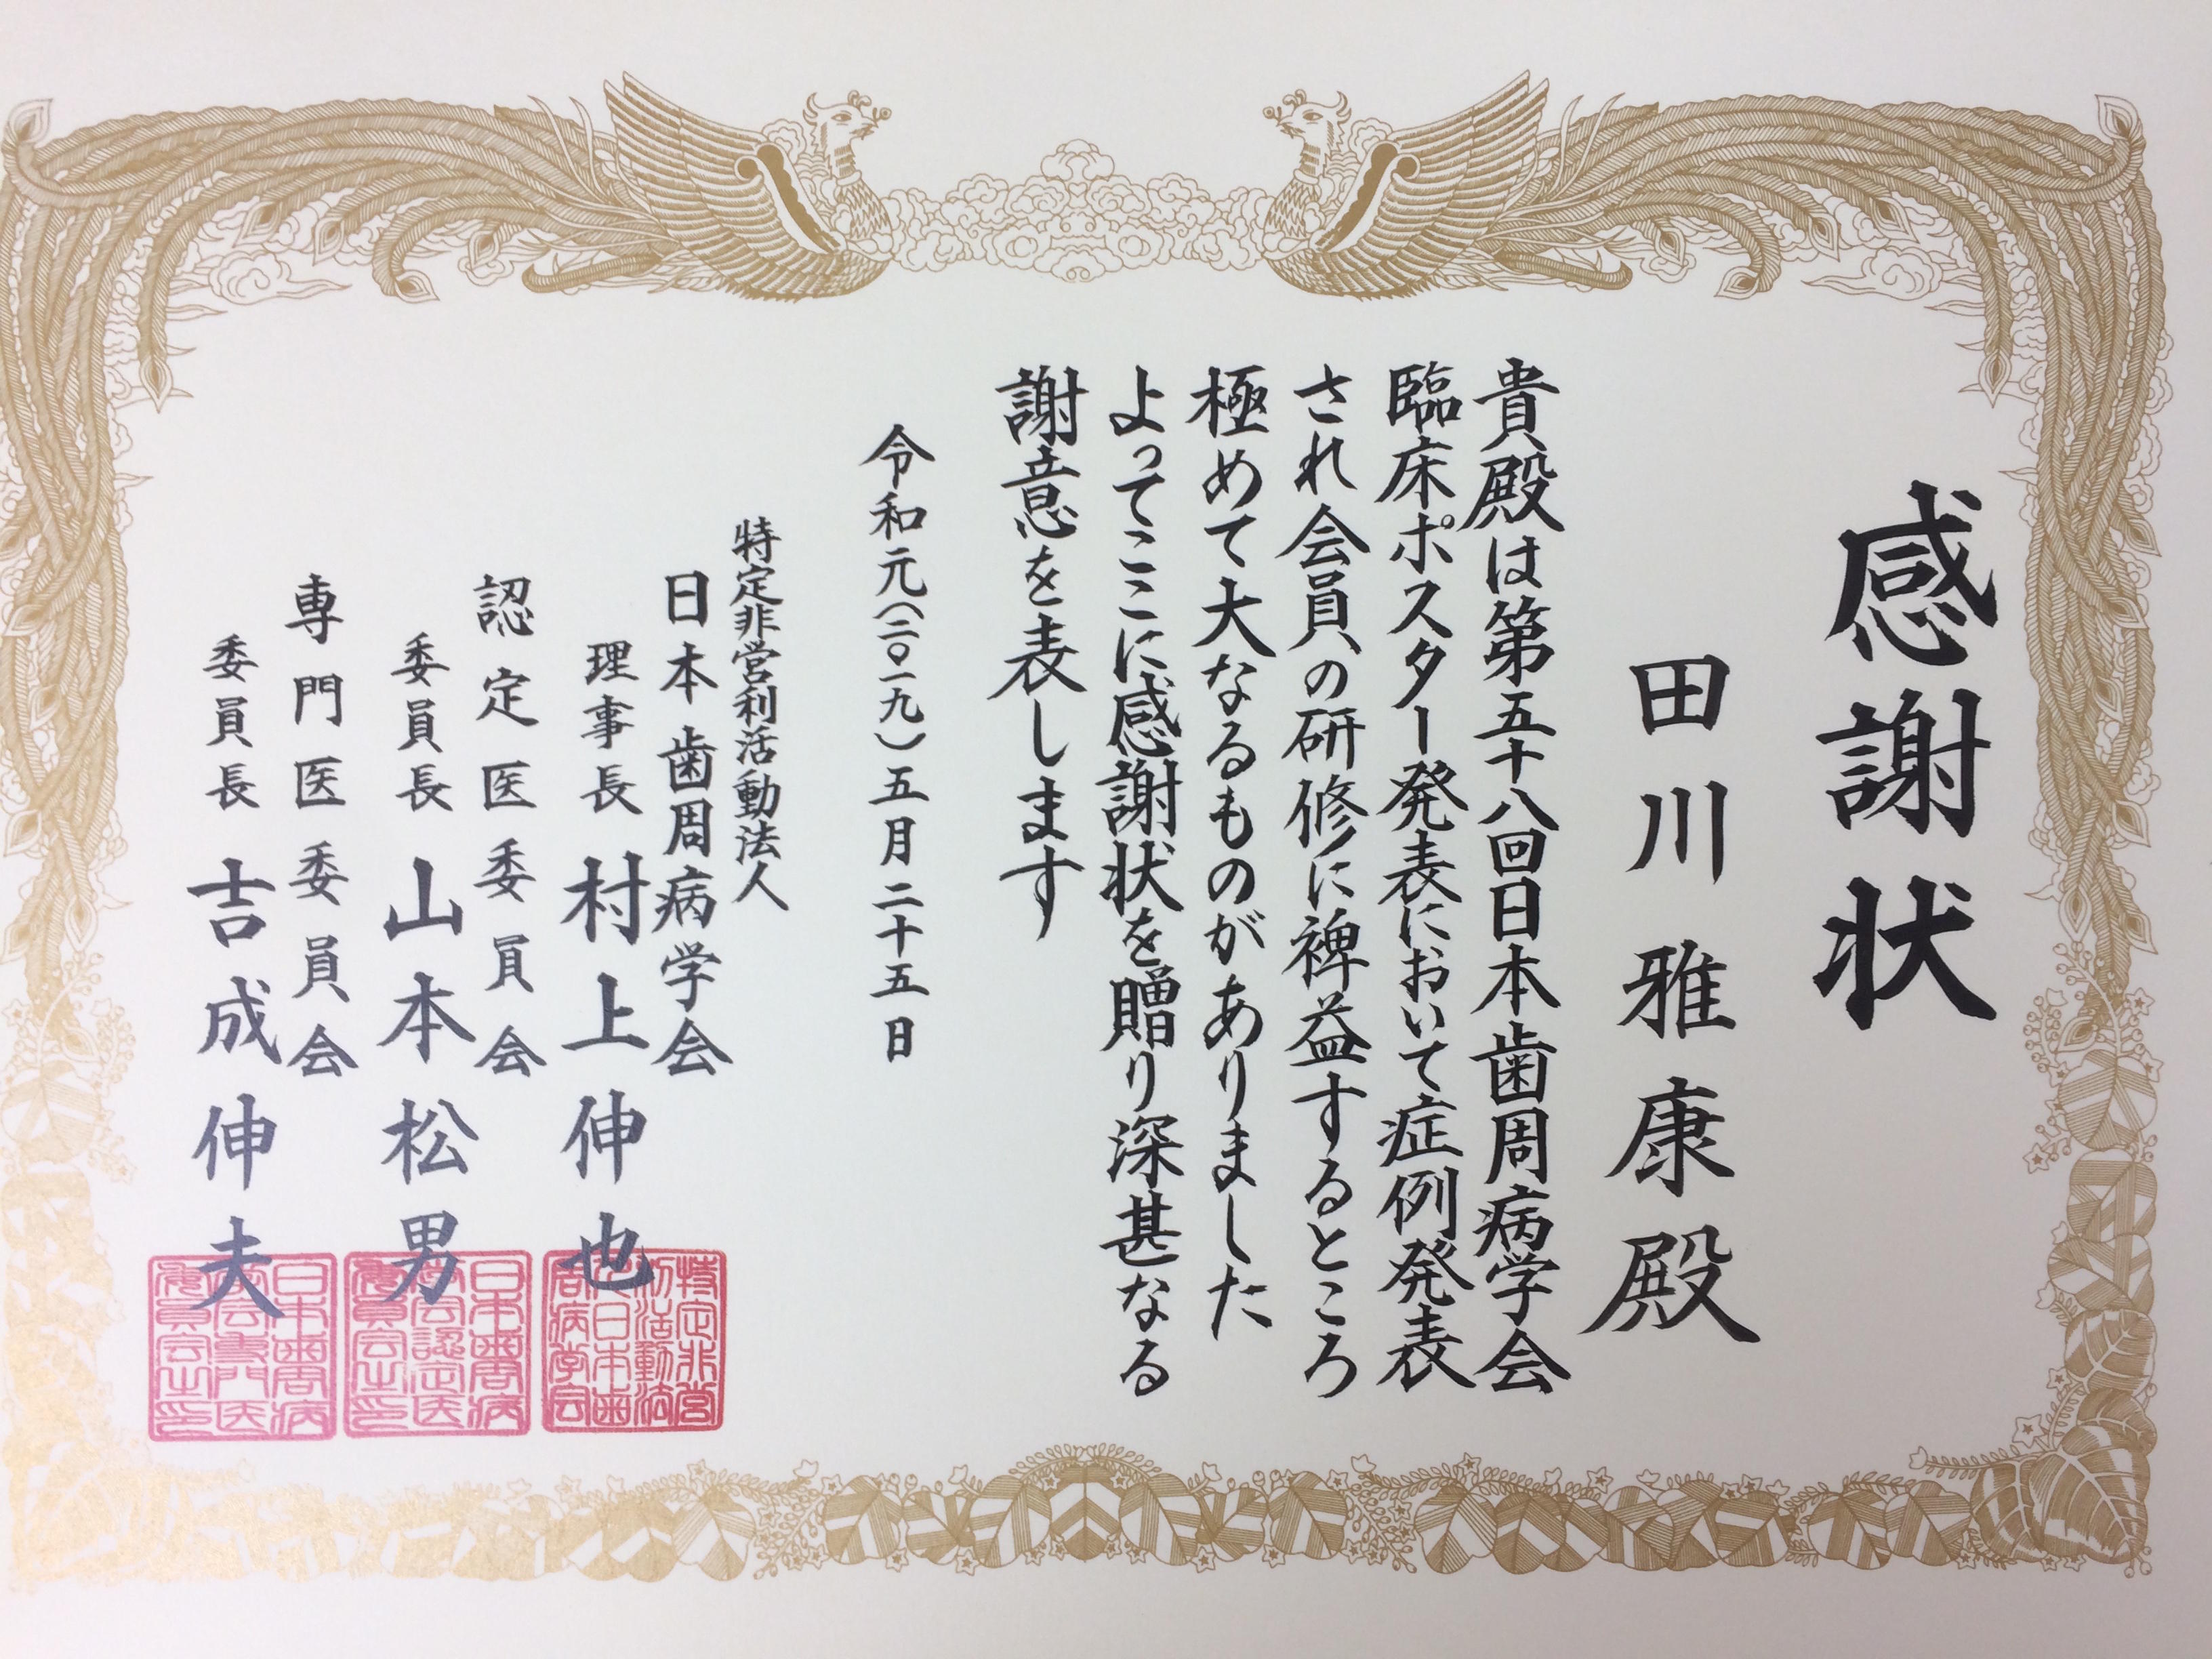 感謝状
田川雅康殿
貴殿は第五十八回日本歯周病学会
臨床ポスター発表において症例発表
され会員の研修に裨益するところ
極めて大なるものがありました
よってここに感謝状を贈り深甚なる
謝意を表します
令和元(二〇一九)五月二十五日
特定非営利活動法人
日本歯周病学会
理事長 村上伸也
認定医委員会
委員長 山本松男
専門医委員会
委員長 吉成伸夫
特定非営
利活動法
人日本歯
周病学会
日本歯周病
学会認定医
委員会之印
日本歯周病
学会専門医
委員会之印